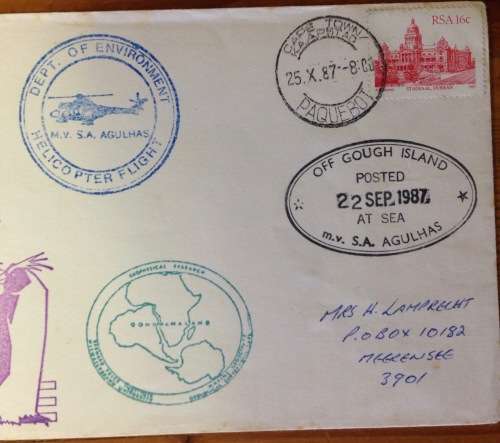 DEPT. OF ENVIRONMENT
M.V. S.A. AGULHAS
HELICOPTER FLIGHT
CAPE TOWN
KAAPSTAD
25.X.87-8.00
PAQUEBOT
RSA 16c
STADSAAL, DURBAN
OFF GOUGH ISLAND
POSTED
22 SEP. 1987
AT SEA
m.v. S.A. AGULHAS
GEOPHYSICAL RESEARCH
GONDWANALAND
MRS H. LAMPRECHT
P.O BOX 10182
MEERENSEE
3901